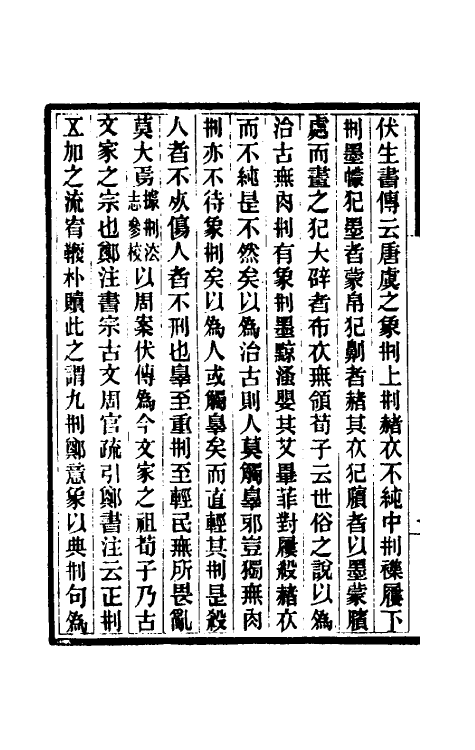 伏生書傳云唐虞之象刑上刑赭衣不純中刑襍屨下
刑墨幪犯墨者蒙帛犯劓者赭其衣犯臏者以墨蒙臏
處而畫之犯大辟者布衣無領荀子云世俗之說以為
治古無肉刑有象刑墨黥溞嬰其艾畢菲對屨殺赭衣
而不純是不然矣以為治古則人莫觸辠邪豈獨無肉
刑亦不待象刑矣以為人或觸辠矣而直輕其刑是殺
人者不死傷人者不刑也辠至重刑至輕民無所畏亂
莫大焉據荆㳒志參校以周案伏傳為今文家之祖荀子乃古
文家之宗也鄭注書宗古文周官疏引鄭書注云正刑
五加之流宥鞭朴贖此之謂九刑鄭意象以典刑句為